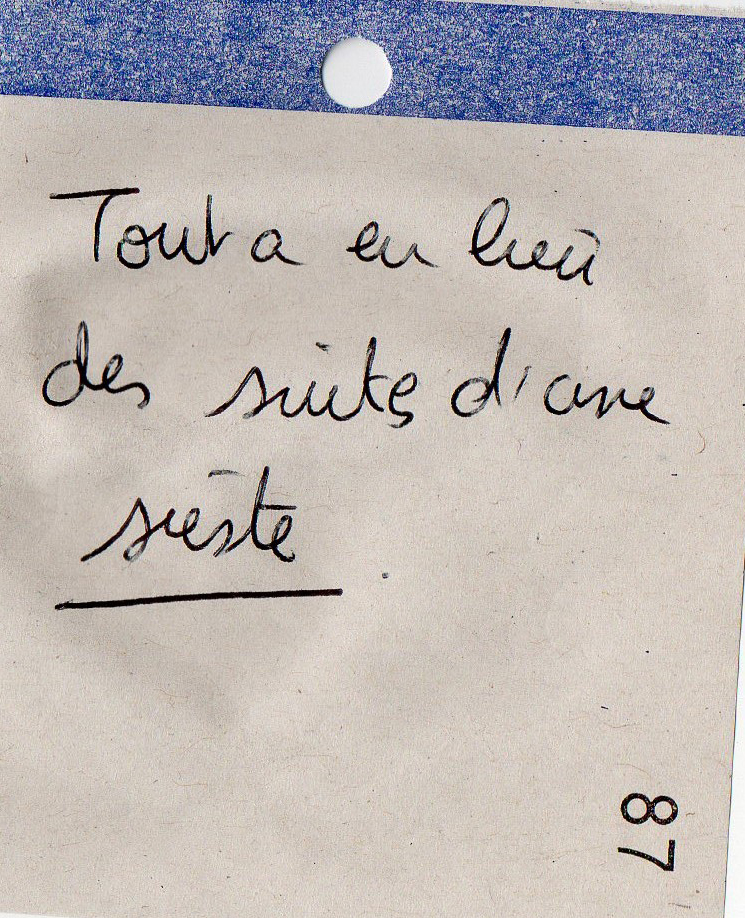 Tout a eu lieu
des suites d'une
sieste.
87